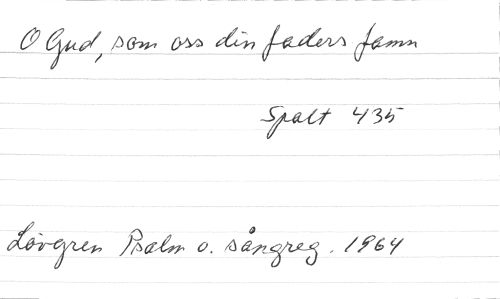 O Gud, som oss din faders famn
Spalt 435
Lövgren Psalm o. sångreg. 1964